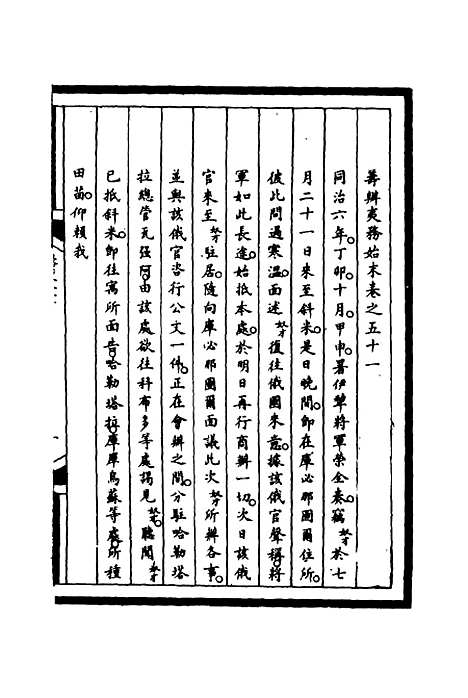 籌辦夷務始末卷之五十一
同治六年丁卯十月甲申署伊犂將軍榮全奏竊奴才於七
月二十一日來至斜米是日晚間卽在庫必那圖爾住所
彼此問過寒温面述奴才復往俄國來意據該俄官聲稱將
軍如此長途始抵本處於明日再行商辦一切次日該俄
官來至奴才駐居隨向庫必那圖爾面議此次奴才所辦各事
並與該俄官咨行公文一件正在會辦之間分駐哈勒塔
拉總管瓦强阿由該處欲往科布多等處謁見奴才聽聞奴才
已抵斜米卽往寓所面告哈勒塔拉庫庫烏蘇等處所種
田苗仰賴我